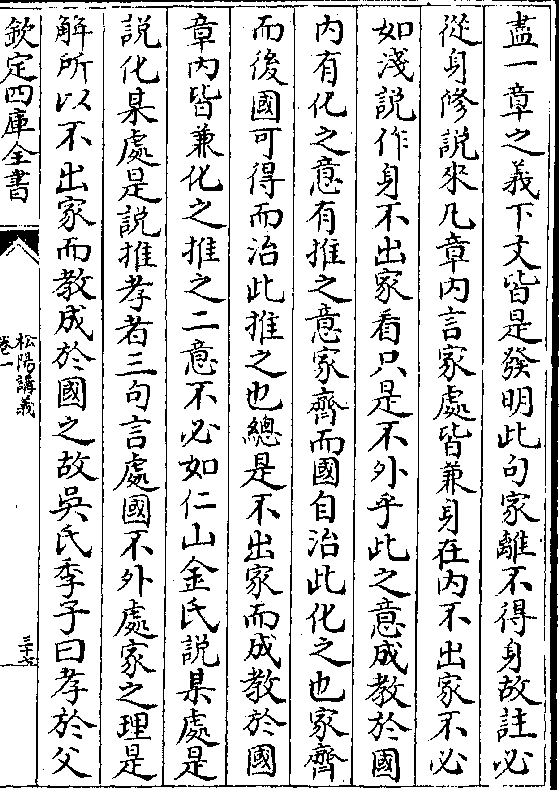 盡一章之義下文皆是發明此句家離不得身故註必
從身修說來凡章内言家處皆兼身在内不出家不必
如淺說作身不出家看只是不外乎此之意成教於國
内有化之意有推之意家齊而國自治此化之也家齊
而後國可得而治此推之也總是不出家而成教於國
章内皆兼化之推之二意不必如仁山金氏說某處是
說化某處是說推孝者三句言處國不外處家之理是
解所以不出家而教成於國之故吳氏季子曰孝於父
欽定四庫全書
松陽講義
卷一
三十七